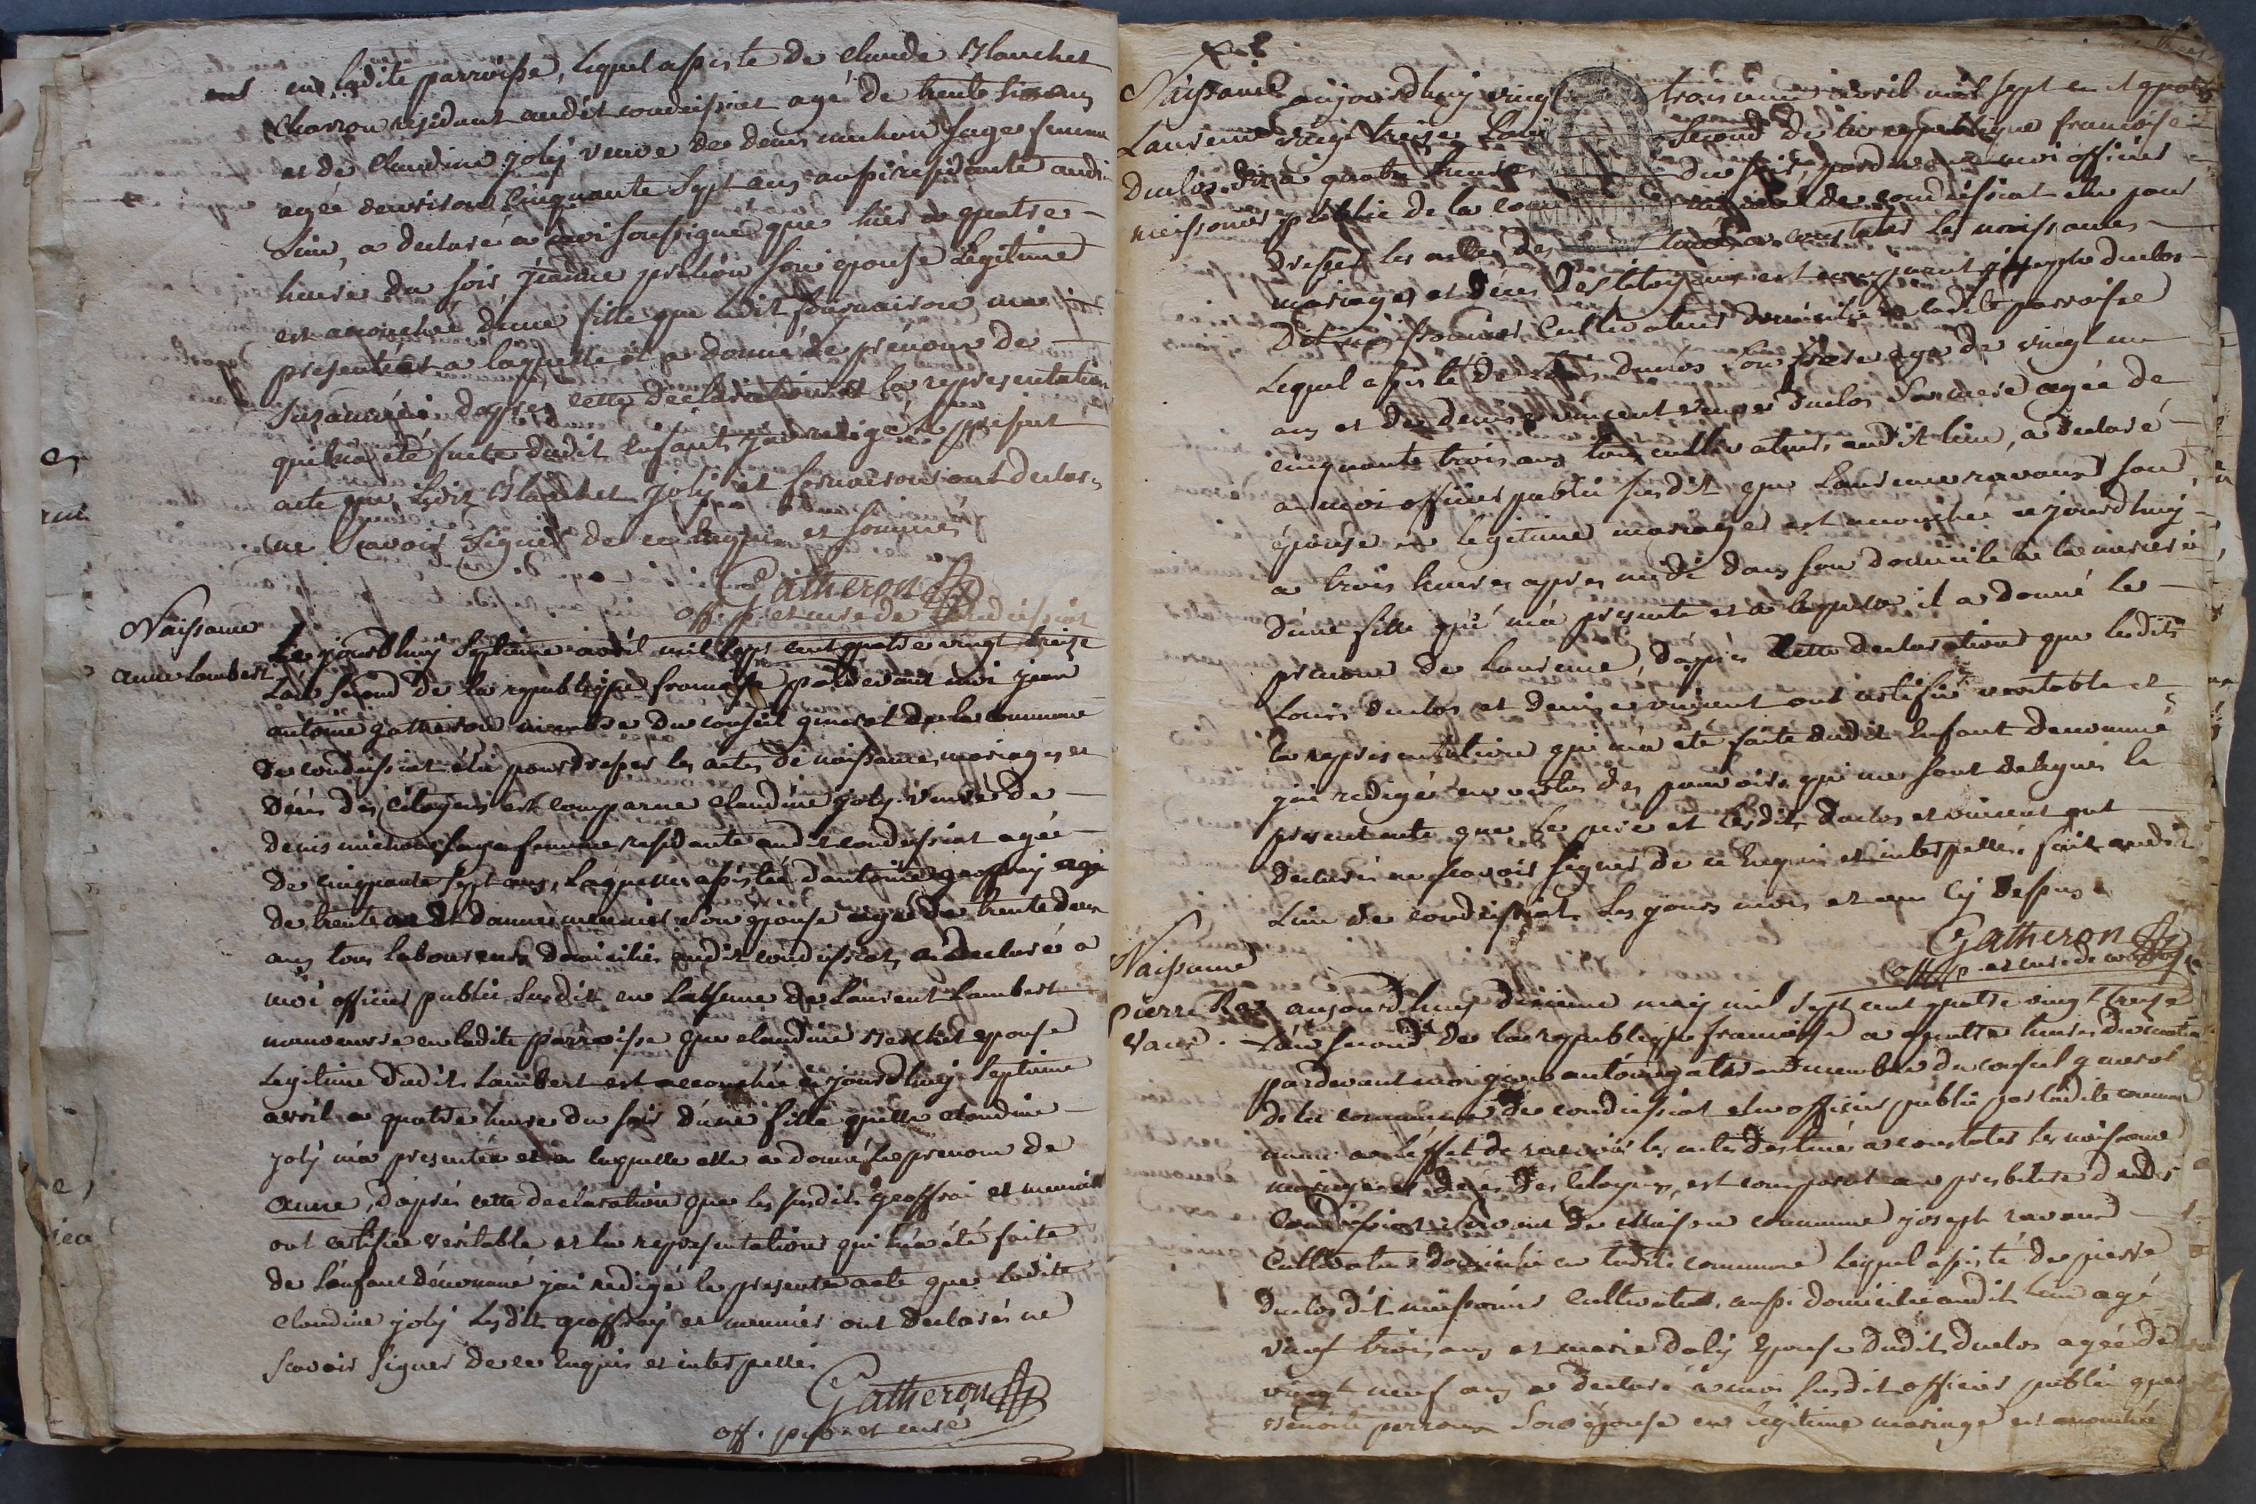 en ladite parroisse, lequel assisté de claude Blanchet
charron residant audit condeissiat agé de trente six ans
et de claudine joly veuve de denis michon sage femme
agée d'environ cinquante sept ans aussi residante audit
lieu, a declaré a moi soussigné que hier a quatre
heures du soir jeanne son epouse legitime
est accouchée d'une fille que ledit fornaison m'a
presentée et a laquelle il a donné le prenom de
d'apres cette declaration et la representation
qui m'a été faite dudit enfant j'ai redigé le present
acte que lesdits Blanchet joly et fornaison ont declarés
ne scavoir signer de ce enquis et sommés
Gatheron
off. p. et curé de Condeissiat
Naissance
anne Lambert
Ce jourdhuy septieme avril mil sept cent quatre vingt treize
L'an second de la republique francoise pardevant moi jean
antoine gatheron membre du conseil general de la commune
de condeissiat élu pour dresser les actes de naissances, mariages et
décès des citoyens est comparue claudine joly veuve de
denis michon sage femme residante audit condeissiat agée
de cinquante sept ans, laquelle assistée d'antoine geoffray agé
de trente ans et d'anne meunier son épouse agée de trente deux
ans tous laboureurs domiciliés audit condeissiat, a declaré a
moi officier public susdit en l'absence de Laurent Lambert
manoeuvre en ladite parroisse que claudine epouse
Legitime dudit Lambert est accouchée ce jourdhuy septieme
avril a quatre heure du soir d'une fille quelle claudine
joly m'a presentée et a laquelle elle a donné le prenom de
anne, d'aprés cette declaration que les susdits geoffrai et meunier
ont certifiée veritable et la representation qui m'a été faite
de l'enfant dénommé j'ai redigé le present acte que ladite
claudine joly lesdits geoffray et meunier ont declarés ne
scavoir signer de ce enquis et interpellés
Gatheron
off. pub. et curé
Naissance
Laurence
duclos dit
meissonier
aujourdhuy vingt troisieme avril mil sept cent quatre
vingt treize L'an second de la republique francoise
a quatre heures du soir, pardevant moi officier
public de la commune de condeissiat élu pour
dresser les actes destinés a constater les naissances
mariages et décès des citoyens est comparu joseph duclos
dit meissonier cultivateur domicilié en ladite parroisse
Lequel assisté de louis duclos son frere agé de vingt un
ans et de denise vincent veuve duclos sa mere agée de
cinquante trois ans tous cultivateurs audit lieu, a declaré
a moi officier public susdit que Laurence ravaud son
épouse en legitime mariage est accouchée ce jourdhuy
a trois heures apres midi dans son domicile
d'une fille qu'il m'a presenté et a laquelle il a donné le
prenom de Laurence, d'apres cette declaration que lesdits
louis duclos et denise vincent ont certifié veritable et
la representation qui m'a été faite dudit enfant denommé
j'ai redigé en vertu des pouvoirs qui me sont delegués le
present acte que le pere et lesdits duclos et vincent ont
declarés ne scavoir signer de ce enquis et interpellés. fait audit
Lieu de condeissiat les jours mois et an cy dessus
Gatheron
off. p. et curé de condeissiat
Naissance
pierre Ra
vaud.
aujourdhuy dixieme may mil sept cent quatre vingt treize
L'an second de la republique francoise a quatre heures du matin
pardevant moi jean antoine gatheron membre du conseil general
de la commune de condeissiat élu officier public par ladite commune
a l'effet de recevoir les actes destinés a constater les naissances
mariages et décès des citoyens, est comparu au presbitere dudit
condeissiat servant de maison commune joseph ravaud
cultivateur domicilié en ladite commune lequel assisté de pierre
duclos dit meissonier cultivateur aussi domicilié audit lieu agé
trois ans et marie joly epouse dudit duclos agée de
vingt neuf ans a declaré a moi susdit officier public que
benoite perroux son épouse en legitime mariage est accouchée